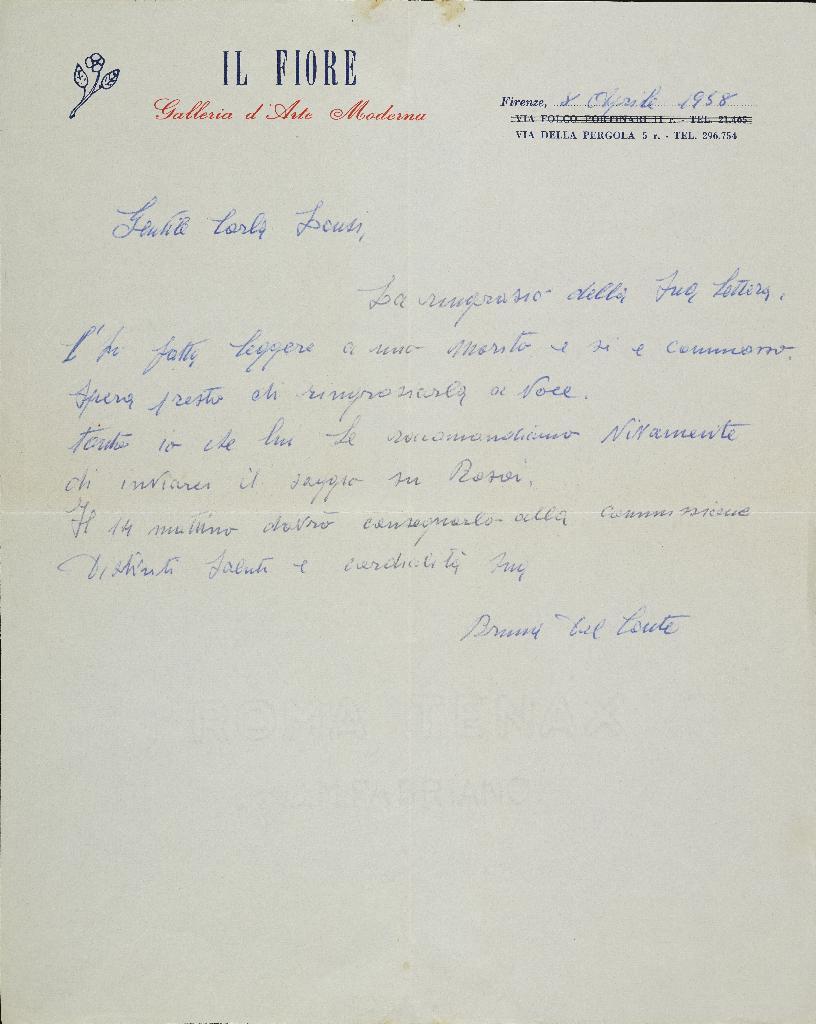 IL FIORE
Galleria d'Arte Moderna
Firenze, 8 Aprile 1958
VIA FOLCO PORTINARI 11 r. - TEL. 21.465
VIA DELLA PERGOLA 5 r. - TEL. 296.754
Gentile Carla
La ringrazio della Sua lettera.
L'ho fatta leggere a mio marito e si è commosso.
Spera presto di ringraziarla a voce.
Tanto io che lui Le raccomandiamo vivamente
di inviarci il saggio su Rosai.
Il 14 mattino dovrò consegnarlo alla commissione
Distinti saluti e cordialità Sua
Bruna Del Conte